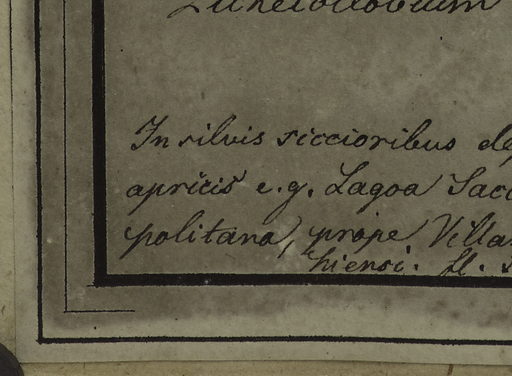 In silvis siccioribus de
apricis e.g. Lagoa Sac
politana, prope Villa
hiensi. fl.